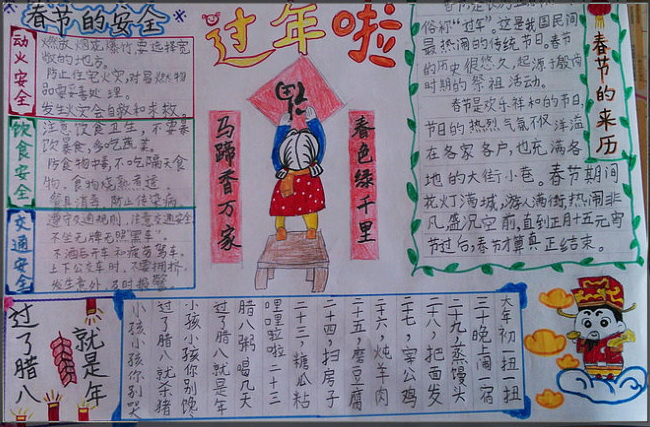 春节的安全
动火安全
燃放烟花爆竹要选择宽
敞的地方。
防止住宅火灾,对易燃物
品要妥善处理。
发生火灾会自救和求救
饮食安全
注意饮食卫生,不要暴
饮暴食,多吃蔬菜。
防食物中毒,不吃隔夜食
物,食物烧熟煮透。
餐具消毒,防止传染病
交通安全
遵守交通规则,注意交通安全
不坐无牌无照"黑车"。
不酒后开车和疲劳驾车。
上下公交车时,不要拥挤。
发生意外,及时报警
过年啦
春色绿千里
马蹄香万家
春节的来历
俗称"过年"。这是我国民间
最热闹的传统节日。春节
的历史很悠久,起源于殷商
时期的祭祖活动。
春节是欢乐祥和的节日,
节日的热烈气氛不仅洋溢
在各家各户,也充满各
地的大街小巷。春节期间
花灯满城,游人满街,热闹非
凡,盛况空前,直到正月十五元宵
节过后,春节才算真正结束。
过了腊八
就是年
小孩小孩你别哭
过了腊八就杀猪
小孩小孩你别馋
过了腊八就是年
腊八粥 喝几天
哩哩啦啦 二十三
二十三,糖瓜粘
二十四,扫房子
二十五,磨豆腐
二十六,炖羊肉
二十七,宰公鸡
二十八,把面发
二十九,蒸馒头
三十晚上闹一宿
大年初一扭一扭